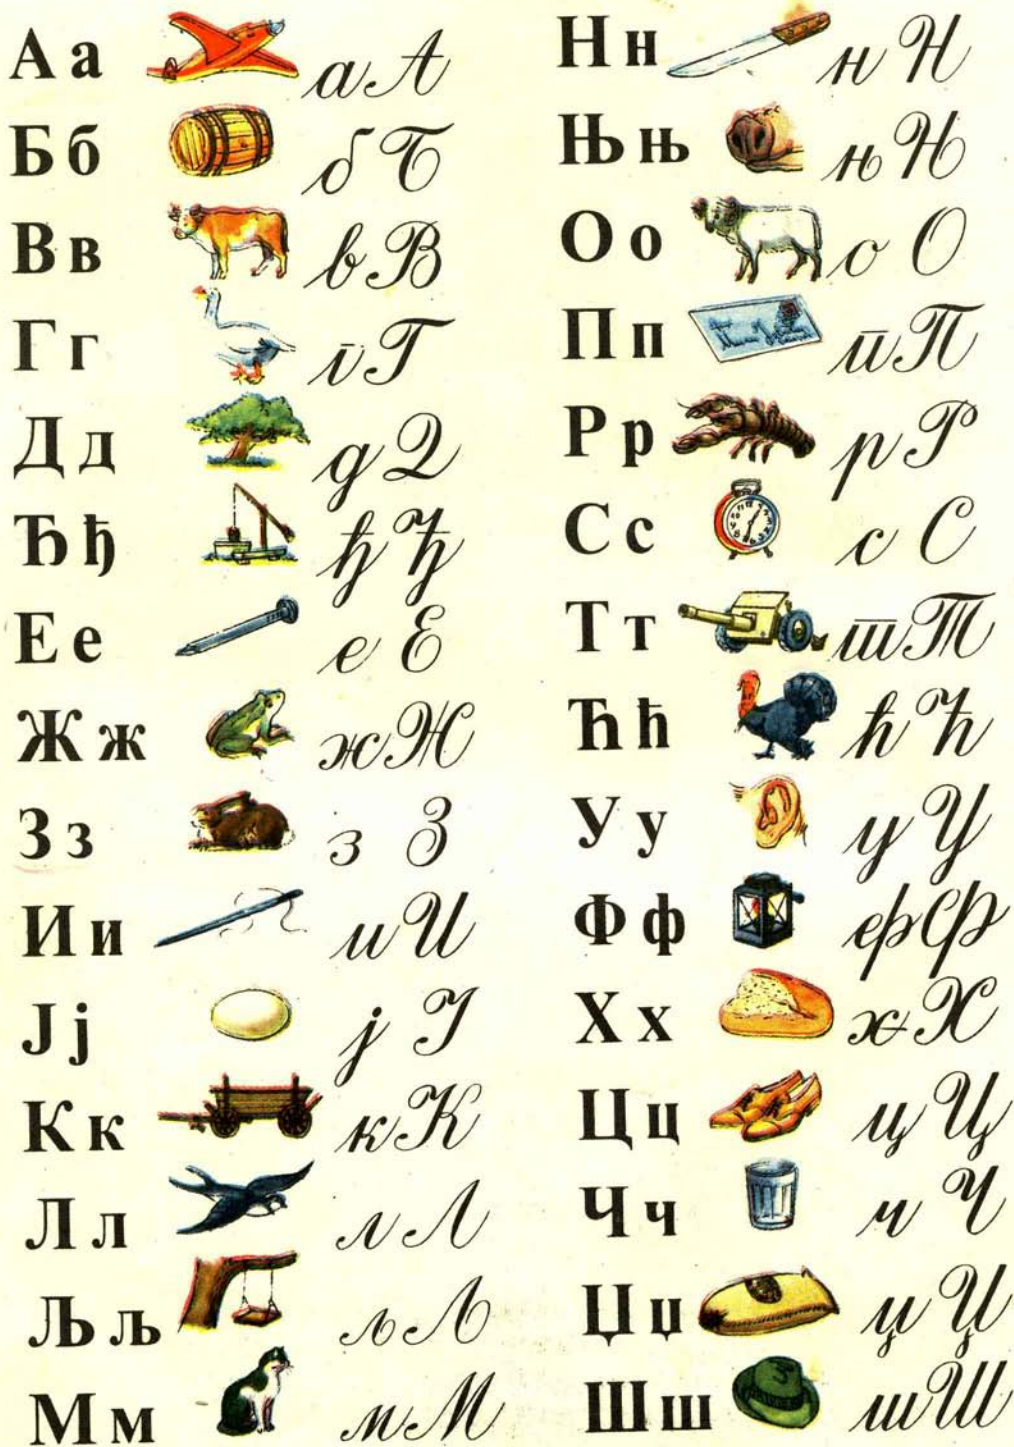 А а а А
Б б б Б
В в в В
Г г г Г
Д д д Д
Ђ ђ ђ Ђ
Е е е Е
Ж ж ж Ж
З з з З
И и и И
Ј ј ј Ј
К к к К
Л л л Л
Љ љ љ Љ
М м м М
Н н н Н
Њ њ њ Њ
О о о О
П п п П
Р р р Р
С с с С
Т т т Т
Ћ ћ ћ Ћ
У у у У
Ф ф ф Ф
Х х х Х
Ц ц ц Ц
Ч ч ч Ч
Џ џ џ Џ
Ш ш ш Ш